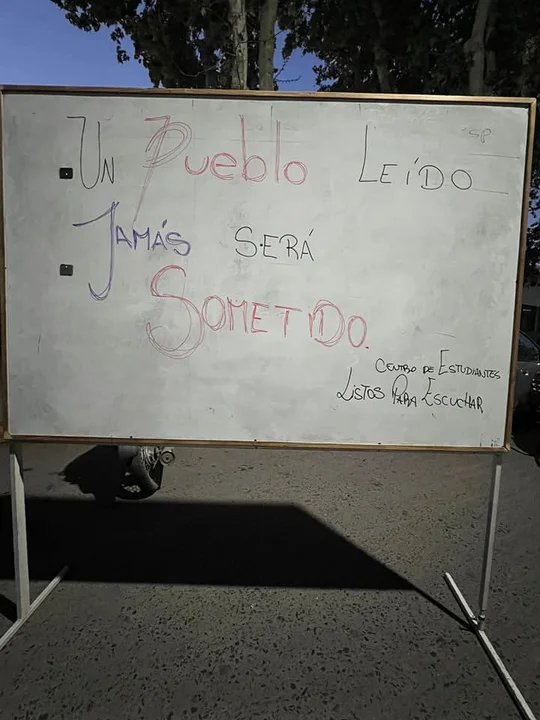 Un Pueblo Leído
Jamás será
Sometido.
Centro de Estudiantes
Listos Para Escuchar